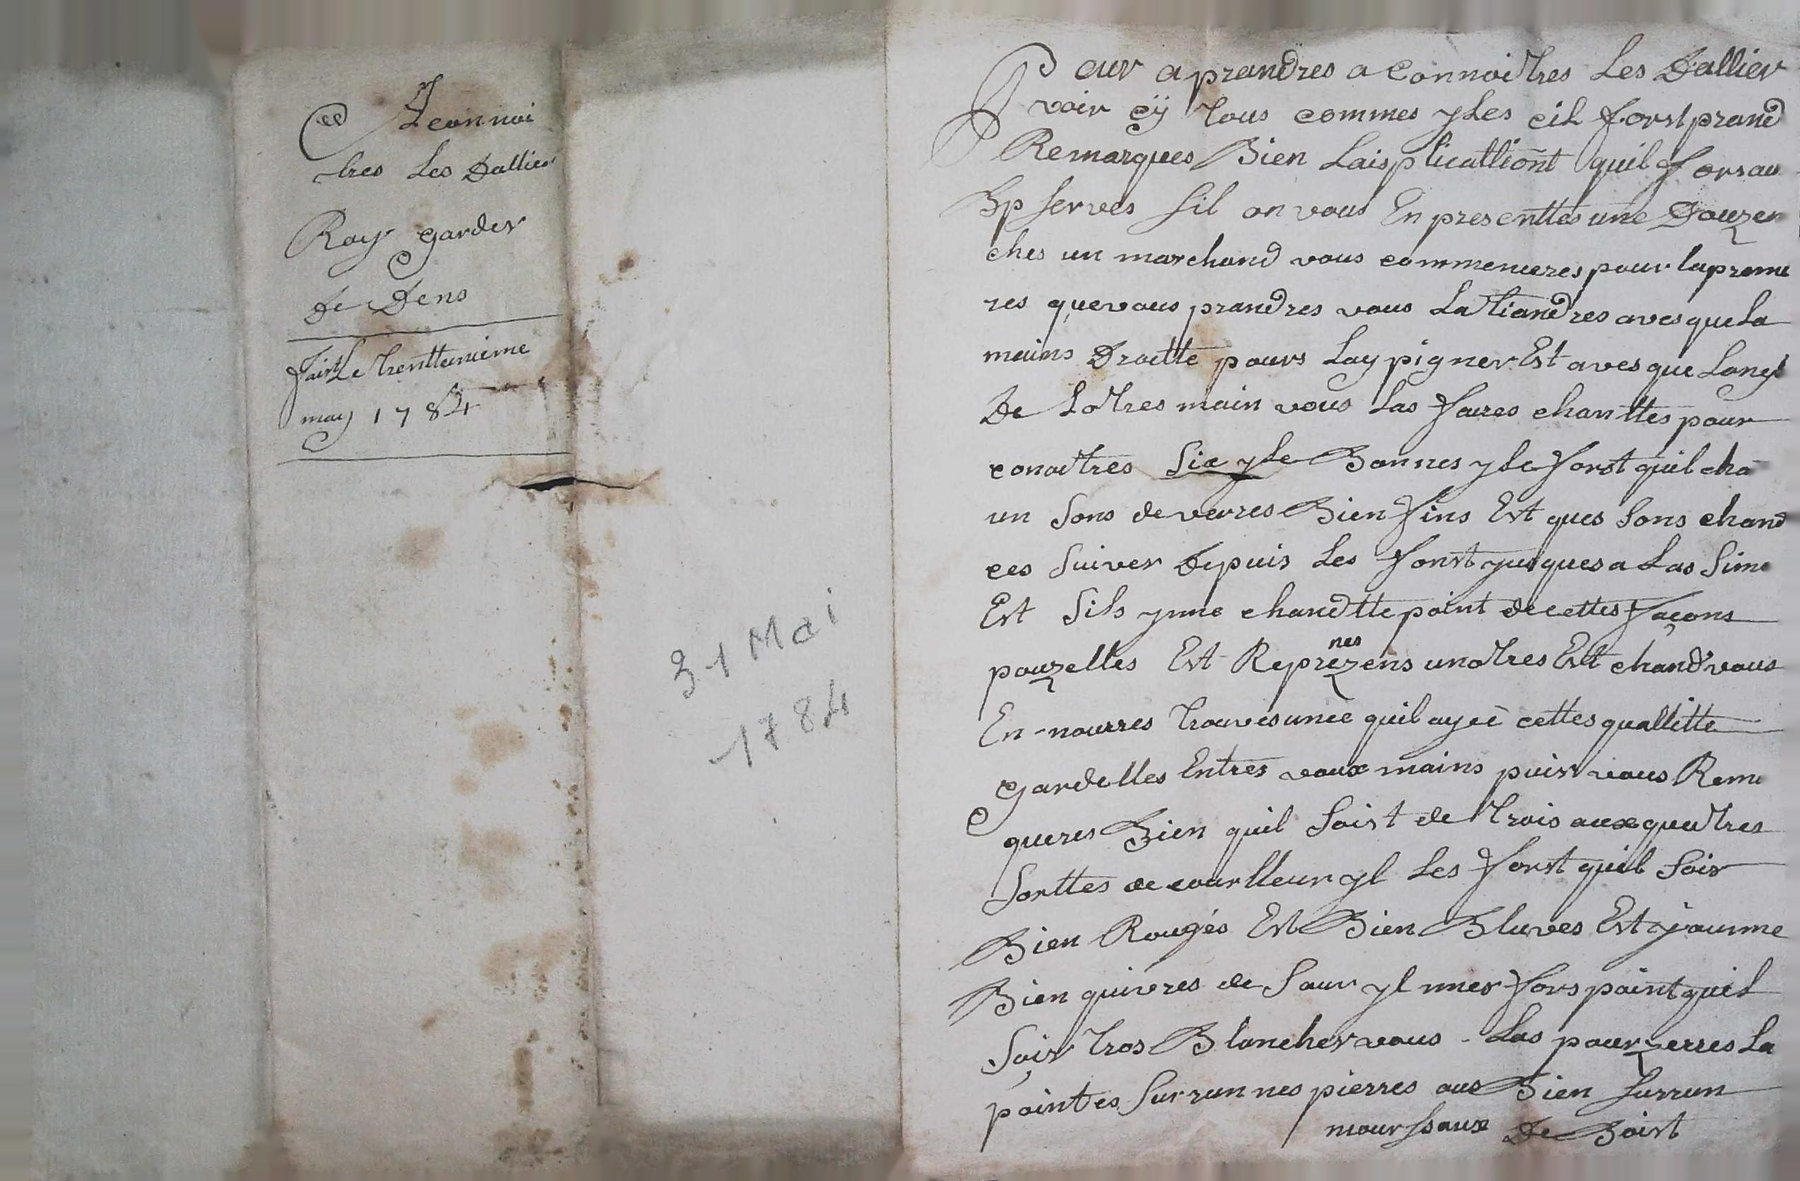 A
Ce Leconnoi
tres Les Dallier
Roy garder
de Dens
fairt Le trentteunieme
may 1784
31 Mai
1784
Pour aprandres a Connoitres Les Dallier
voir cÿ tous commes yles cil forst prand
Remarques Bien Laisplicattiont quil forsau
Bp serves sil on vous En presenttes une Douzen
ches un marchand vous commenceres pour lapreme
res quevous prandres vous La tiandres avesque la
mains Droitte pours Lay pigner Est avesque Longl
De Lotres main vous Las faires chanttes pour
conoitres Sixyle Bonnes yle forst quil cha
un Sons de verres Bien fins Est ques Sons chand
ces Suiver Depuis Les fonst jusques a Las Sime
Est Sils ynne chandtte point de cettes façons
pouzelles Est Reprezens unotres Est chand vous
nes
En-nourres trouves unee quil ayee cettes quallitte
gardelles Entres voux mains puis vous Rema
queres Bien quil Soist de trois aux quatres
Sorttes de courlleur yl Les forst quil Soir
Bien Rouges Est Bien Bluves Est jaunne
Bien quivres de Saur yl nnes fors point quil
Soir tros Blancher vous - Las pourzerres La
pointes Surrunnes pierres oue Bien Surrun
mourssaux De Boist